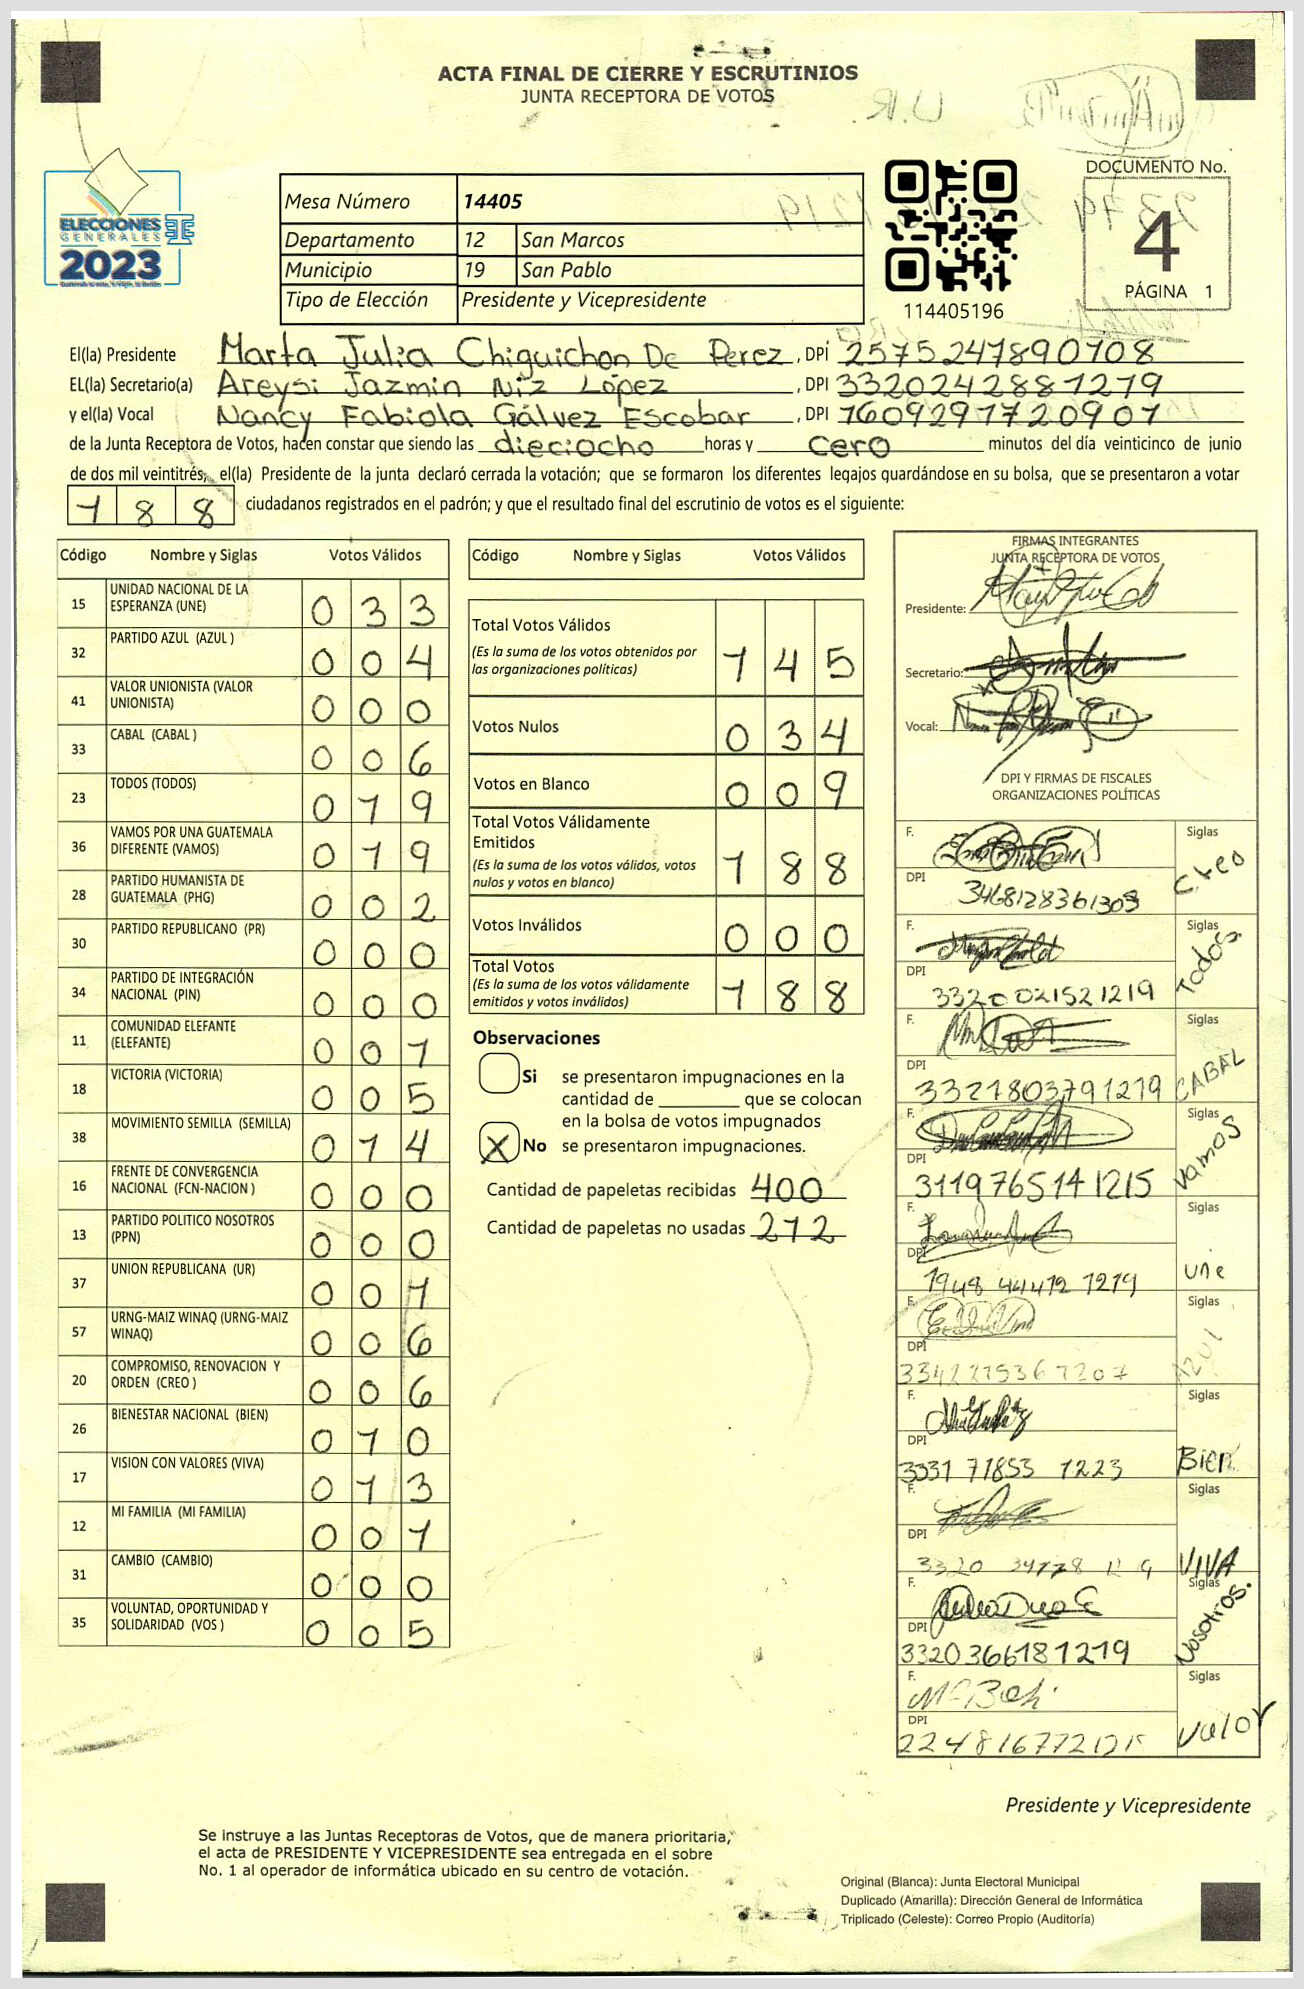 ACTA FINAL DE CIERRE Y ESCRUTINIOS
JUNTA RECEPTORA DE VOTOS
ELECCIONES
GENERALES
2023
Mesa Número 14405
Departamento 12 San Marcos
Municipio 19 San Pablo
Tipo de Elección Presidente y Vicepresidente
114405196
DOCUMENTO No.
4
PÁGINA 1
El(la) Presidente Marta Julia Chiguichon De Perez, DPI 2575247890708
EL(la) Secretario(a) Areysi Jazmin Niz López, DPI 3320242881219
y el(la) Vocal Nancy Fabiola Gálvez Escobar, DPI 1609291720901
de la Junta Receptora de Votos, hacen constar que siendo las dieciocho horas y cero minutos del día veinticinco de junio
de dos mil veintitrés, el(la) Presidente de la junta declaró cerrada la votación; que se formaron los diferentes legajos guardándose en su bolsa, que se presentaron a votar
188 ciudadanos registrados en el padrón; y que el resultado final del escrutinio de votos es el siguiente:
Código Nombre y Siglas Votos Válidos
15 UNIDAD NACIONAL DE LA ESPERANZA (UNE) 033
32 PARTIDO AZUL (AZUL ) 004
41 VALOR UNIONISTA (VALOR UNIONISTA) 000
33 CABAL (CABAL ) 006
23 TODOS (TODOS) 019
36 VAMOS POR UNA GUATEMALA DIFERENTE (VAMOS) 019
28 PARTIDO HUMANISTA DE GUATEMALA (PHG) 002
30 PARTIDO REPUBLICANO (PR) 000
34 PARTIDO DE INTEGRACIÓN NACIONAL (PIN) 000
11 COMUNIDAD ELEFANTE (ELEFANTE) 001
18 VICTORIA (VICTORIA) 005
38 MOVIMIENTO SEMILLA (SEMILLA) 014
16 FRENTE DE CONVERGENCIA NACIONAL (FCN-NACION ) 000
13 PARTIDO POLITICO NOSOTROS (PPN) 000
37 UNION REPUBLICANA (UR) 001
57 URNG-MAIZ WINAQ (URNG-MAIZ WINAQ) 006
20 COMPROMISO, RENOVACION Y ORDEN (CREO ) 006
26 BIENESTAR NACIONAL (BIEN) 010
17 VISION CON VALORES (VIVA) 013
12 MI FAMILIA (MI FAMILIA) 001
31 CAMBIO (CAMBIO) 000
35 VOLUNTAD, OPORTUNIDAD Y SOLIDARIDAD (VOS ) 005
Código Nombre y Siglas Votos Válidos
Total Votos Válidos 145
(Es la suma de los votos obtenidos por
las organizaciones políticas)
Votos Nulos 034
Votos en Blanco 009
Total Votos Válidamente
Emitidos 188
(Es la suma de los votos válidos, votos
nulos y votos en blanco)
Votos Inválidos 000
Total Votos 188
(Es la suma de los votos válidamente
emitidos y votos inválidos)
Observaciones
Si se presentaron impugnaciones en la
cantidad de ________ que se colocan
en la bolsa de votos impugnados
X No se presentaron impugnaciones.
Cantidad de papeletas recibidas 400
Cantidad de papeletas no usadas 212
FIRMAS INTEGRANTES
JUNTA RECEPTORA DE VOTOS
Presidente:
Secretario:
Vocal:
DPI Y FIRMAS DE FISCALES
ORGANIZACIONES POLÍTICAS
F. Siglas Creo
DPI 3468128361303
F. Siglas Todos.
DPI 3320021521219
F. Siglas CABAL
DPI 3321803791219
F. Siglas Vamos
DPI 3119765141215
F. Siglas Une
DPI 1948 44412 1219
F. Siglas AZUL
DPI
F. Siglas Bien
DPI 3331 71853 1223
F. Siglas VIVA
DPI 3320
F. Siglas Nosotros.
DPI 3320366181219
F. Siglas Valor
DPI
Presidente y Vicepresidente
Se instruye a las Juntas Receptoras de Votos, que de manera prioritaria,
el acta de PRESIDENTE Y VICEPRESIDENTE sea entregada en el sobre
No. 1 al operador de informática ubicado en su centro de votación.
Original (Blanca): Junta Electoral Municipal
Duplicado (Amarilla): Dirección General de Informática
Triplicado (Celeste): Correo Propio (Auditoría)